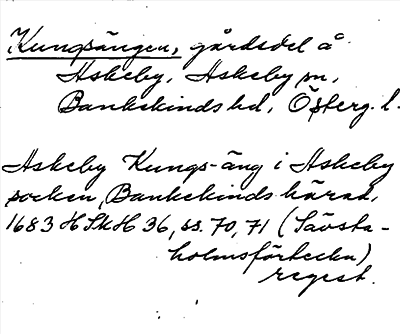 Kungsängen, gårdsdel å
Askeby, Askeby sn,
Bankekinds hd, Österg. l.
Askeby Kungs-äng i Askeby
socken, Bankekinds härad,
1683 HSkH 36, ss. 70, 71 (Sävsta-
holmsförteckn)
regest.